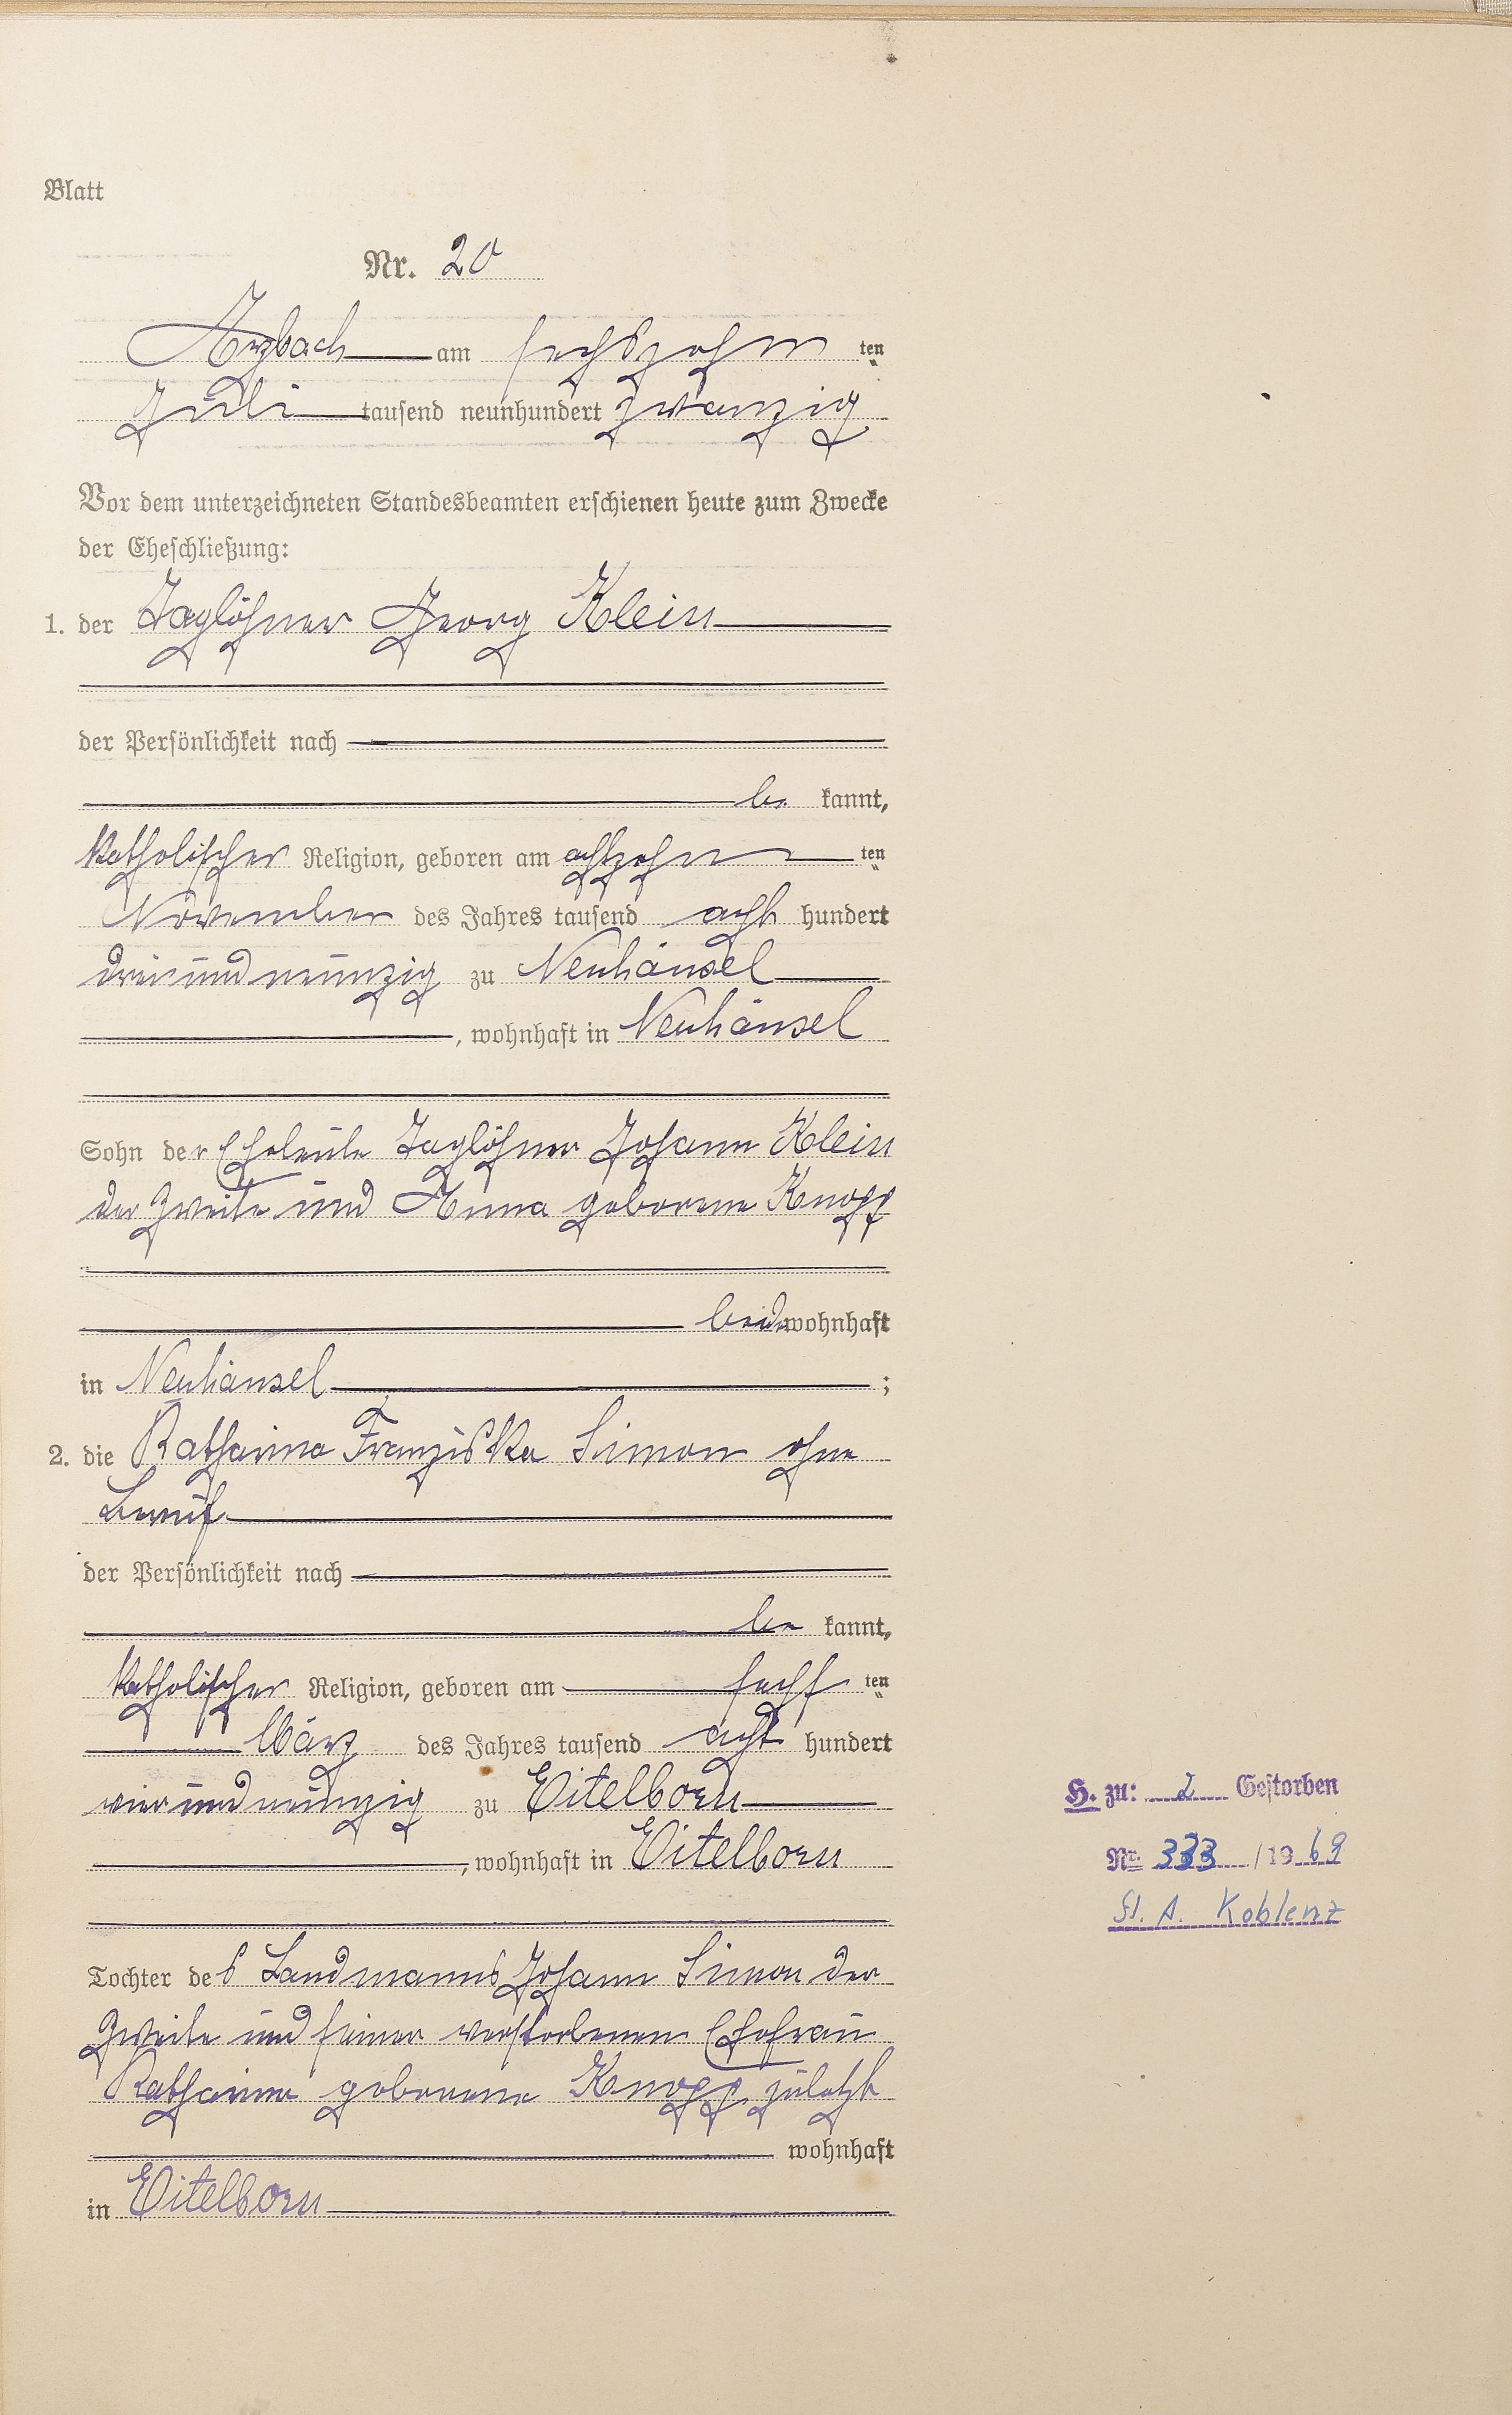 Blatt
Nr. 20
Arzbach am sechszehn ten
Juli tausend neunhundert zwanzig
Vor dem unterzeichneten Standesbeamten erschienen heute zum Zwecke
der Eheschließung:
1. der Taglöhner Georg Klein
der Persönlichkeit nach
be kannt,
katholischer Religion, geboren am achtzehn ten
November des Jahres tausend acht hundert
dreiundneunzig zu Neuhäusel
, wohnhaft in Neuhäusel
Sohn der Eheleute Taglöhner Johann Klein
der Zweite und Anna geborene Knopp
beide wohnhaft
in Neuhäusel ;
2. die Katharina Franziska Simon ohne
Beruf
der Persönlichkeit nach
be kannt,
katholischer Religion, geboren am sechs ten
März des Jahres tausend acht hundert
vierundneunzig zu Eitelborn
, wohnhaft in Eitelborn
Tochter des Landmanns Johann Simon der
Zweite und seiner verstorbenen Ehefrau
Katharina geborene Knopp zuletzt
wohnhaft
in Eitelborn
H. zu: 2 Gestorben
Nr. 333 / 19 69
St. A. Koblenz